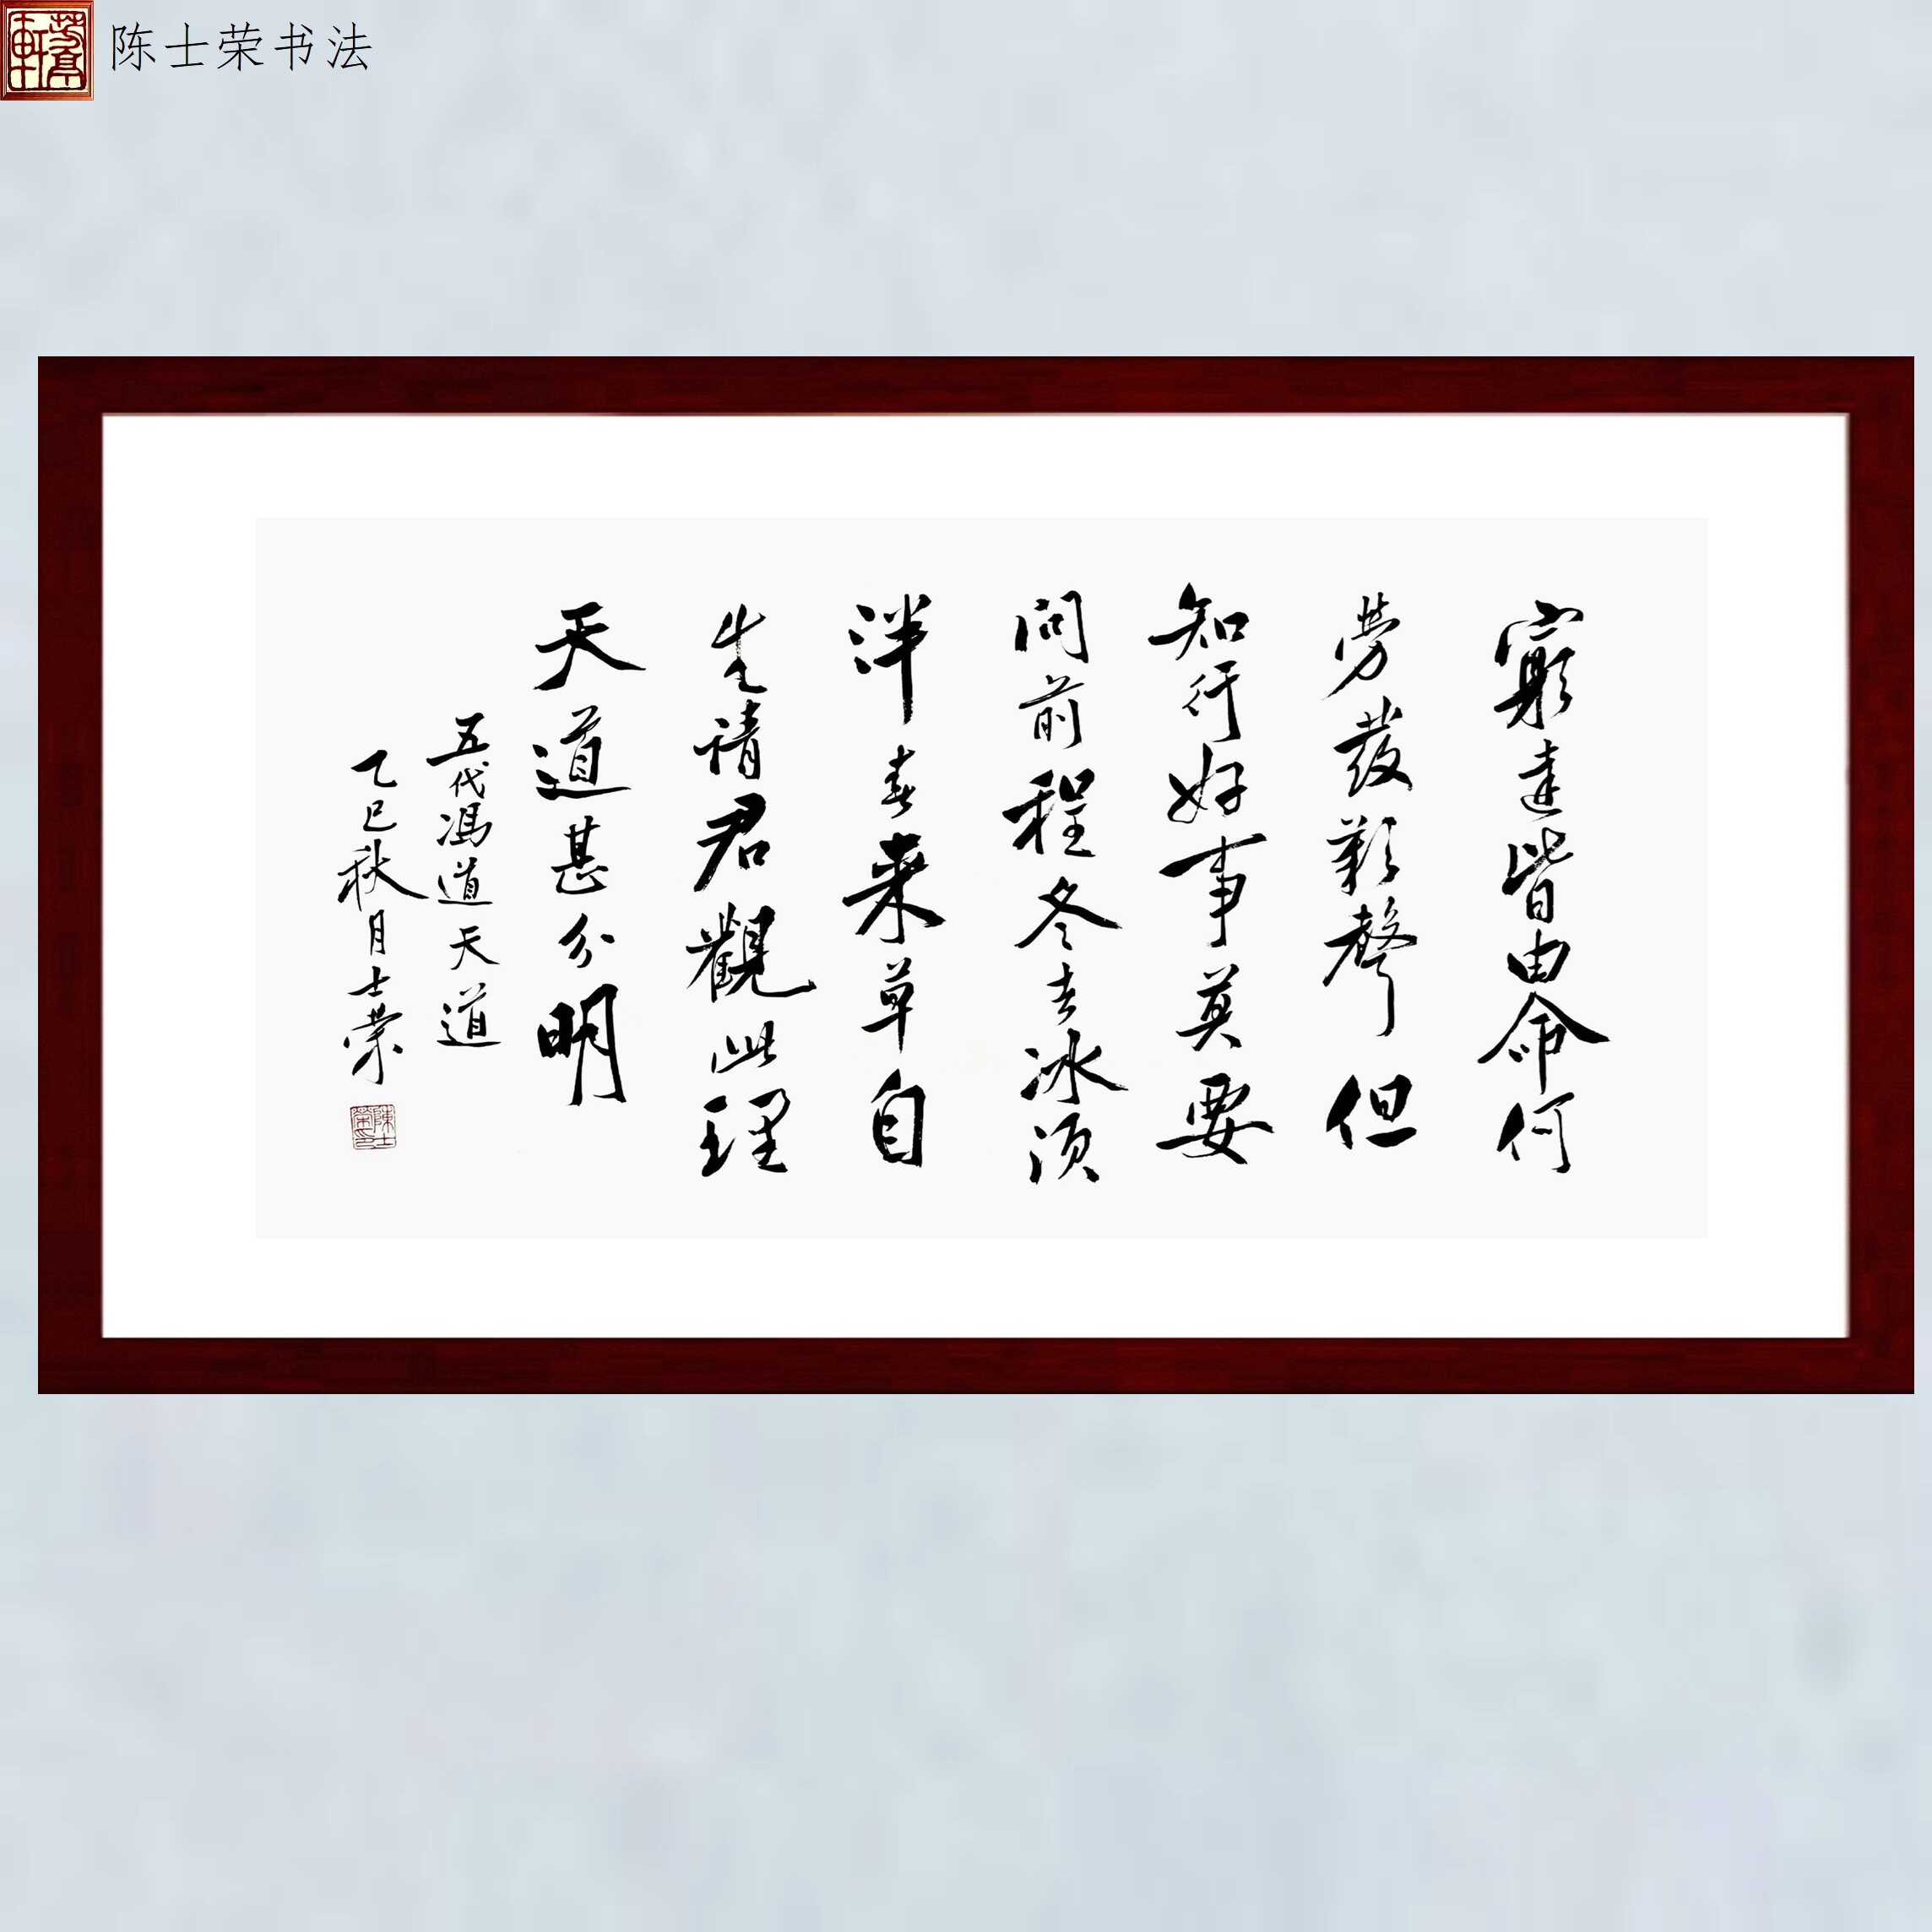 陈士荣书法
窮達皆由命何
勞發歎聲但
知行好事莫要
问前程冬去冰须
泮春来草自
生请君觀此理
天道甚分明
五代馮道天道
乙巳秋月士榮
陳士榮印